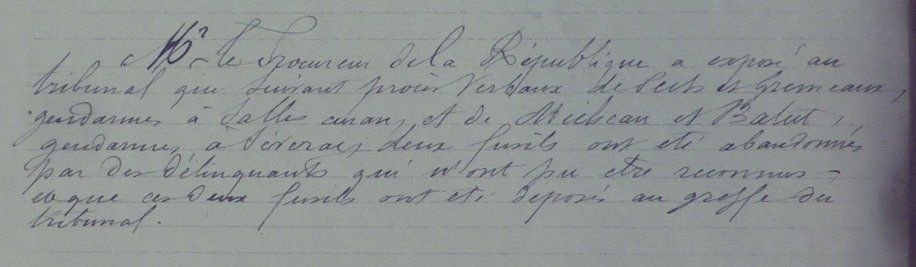 Mr le Procureur de la République a exposé au
tribunal que suivant procès Verbaux de et Gremeaux,
gendarmes à Salles curan, et de et Balut,
gendarmes à Séverac, deux fusils ont été abandonnés
par des délinquants qui n'ont pu etre reconnus -
que ces deux fusils ont été déposés au greffe du
tribunal.